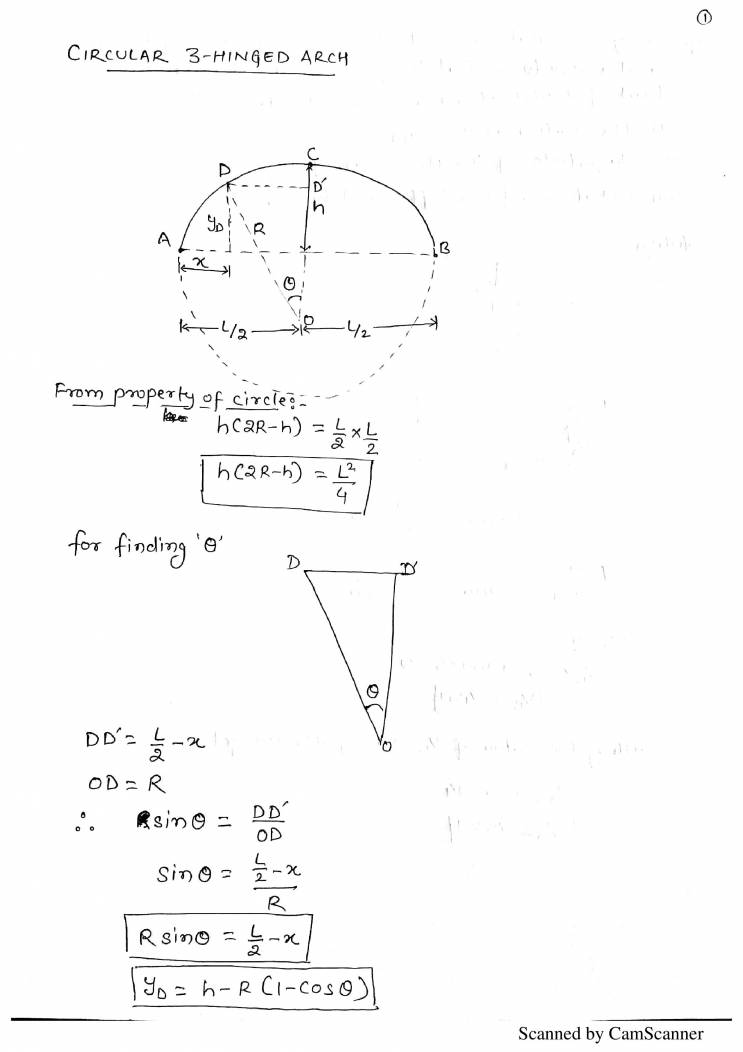 ①
CIRCULAR 3-HINGED ARCH
C
D
D′
h
y_D
R
A
B
x
θ
O
L/2
L/2
From property of circle:-
h(2R-h) = L/2 × L/2
h(2R-h) = L²/4
for finding 'θ'
D
D′
θ
O
DD′ = L/2 - x
OD = R
∴ sinθ = DD′/OD
sinθ = (L/2 - x)/R
R sinθ = L/2 - x
y_D = h - R (1-cosθ)
Scanned by CamScanner